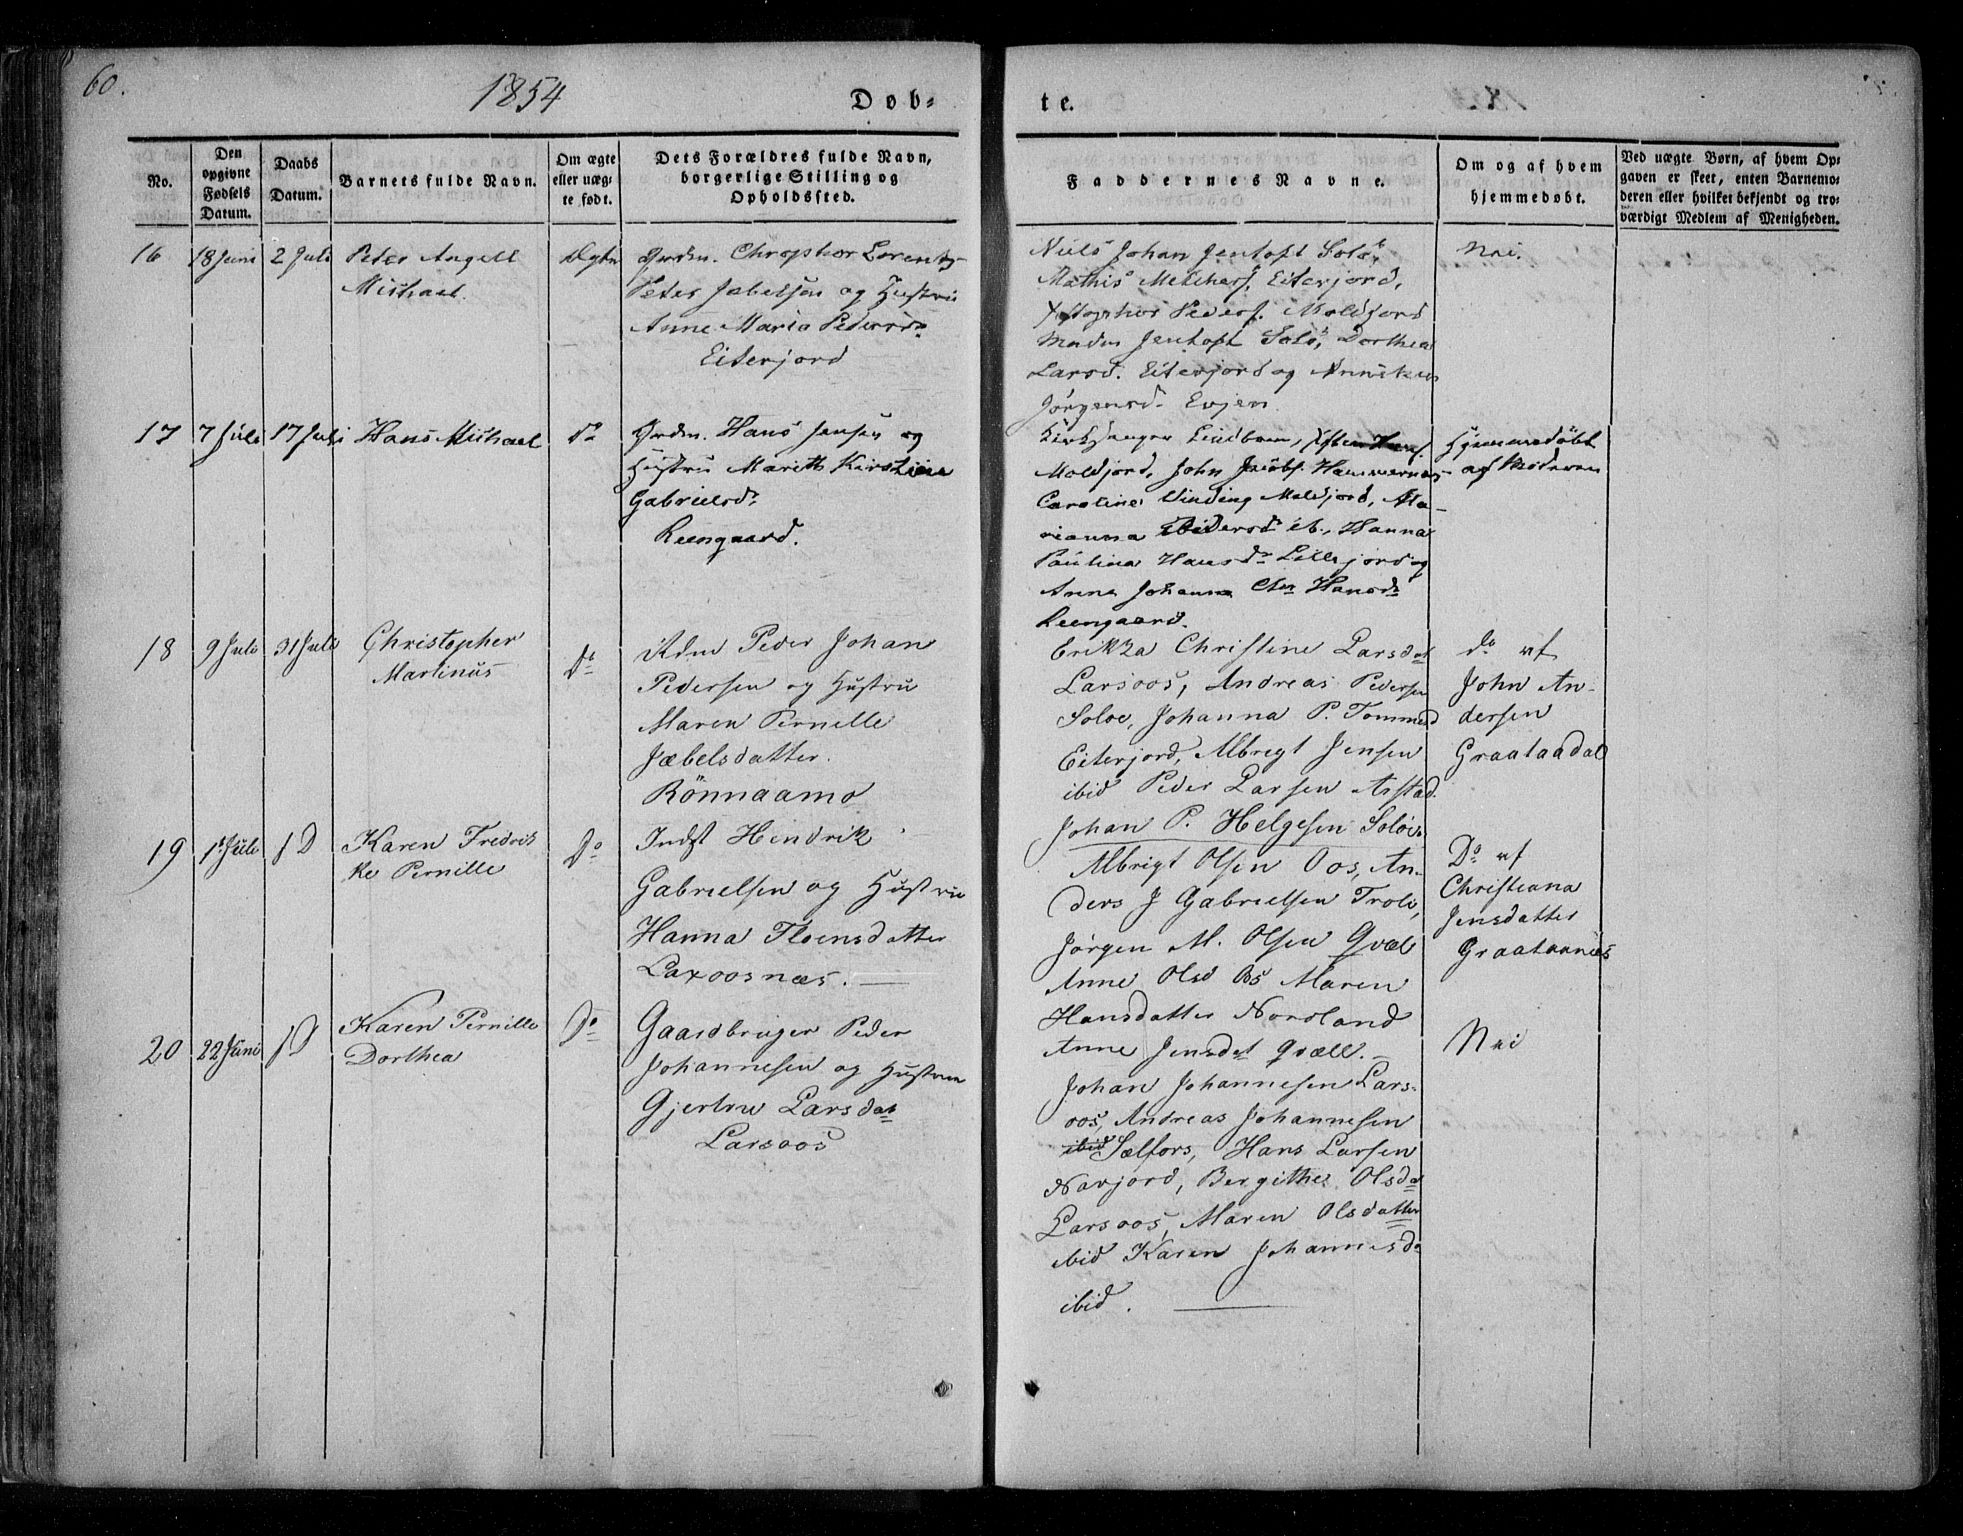 60.
1854
Døb-
te.
No.
Den
opgivne
Fødsels
Datum.
Daabs
Datum.
Barnets fulde Navn.
Om ægte
eller uæg-
te født.
Dets Forældres fulde Navn,
borgerlige Stilling og
Opholdssted.
Faddernes Navne.
Om og af hvem
hjemmedøbt.
Ved uægte Børn, af hvem Op-
gaven er skeet, enten Barnemo-
deren eller hvilket bekjendt og tro-
værdigt Medlem af Menigheden.
16
18 Juni
2 Juli
Peder Angell
Michael.
Ægte
Grdm. Chrophor Lorents
Peter Jæbelsen og Hustru
Anne Maria Pedersd.
Eiterjord
Niels Johan Jentoft Solø,
Mathis Melchers. Eiterjord,
Xstopher Peders. Moldjord
Jentoft Solø, Dorthea
Larsd. Eiterjord og Anniken
Jörgensd. Evjen.
Nei.
17
7 Juli
17 Juli
Hans Michael
Do
Grdm. Hans Jensen og
Hustru Marith Kirstine
Gabrielsdr
Leengaard.
Kirksanger Lindbom, Hans.
Moldjord, John Jacobs. Hammernes
Caroline Vinding Moldjord, Ma-
rianna Pedersdr ib., Hanna
Paulina Hansdr Lillejord og
Anne Johanna Chn Hansdr
Leengaard.
Hjemmedöbt
af Moderen
18
9 Juli
31 Juli
Christopher
Martinus
Do
Peder Johan
Pedersen og Hustru
Maren Pernille
Jæbelsdatter.
Rönnaamo
Erikka Christine Larsdat
Larsoos, Andreas Pedersen
Soloe, Johanna P. Tommesd
Eiterjord, Albrigt Jensen
ibid Peder Larsen Arstad.
Johan P. Helgesen Soløe.
do af
John An-
dersen
Graataadal
19
1t Juli
Karen Fredrik
ke Pernille
Do
Indst Hendrik
Gabrielsen og Hustru
Hanna Floensdatter
Laxoosnæs.
Albrigt Olsen Oos, An-
ders J Gabrielsen Trolv,
Jørgen M. Olsen Qvæl
Anne Olsd Os Maren
Hansdatter Nordland
Anne Jensdat Qvæll.
Do af
Christiana
Jensdatter
Graataanæs
20
22 Juni
Karen Pernille
Dorthea
Do
Gaardbruger Peder
Johannesen og Hustru
Gjertru Larsdat
Larsoos
Johan Johannesen Lars-
oos, Andreas Johannesen
ibid Sælfors, Hans Larsen
Navjord, Bergithe Olsdat
Larsoos, Maren Olsdatter
ibid Karen Johannesdr
ibid.
Nei